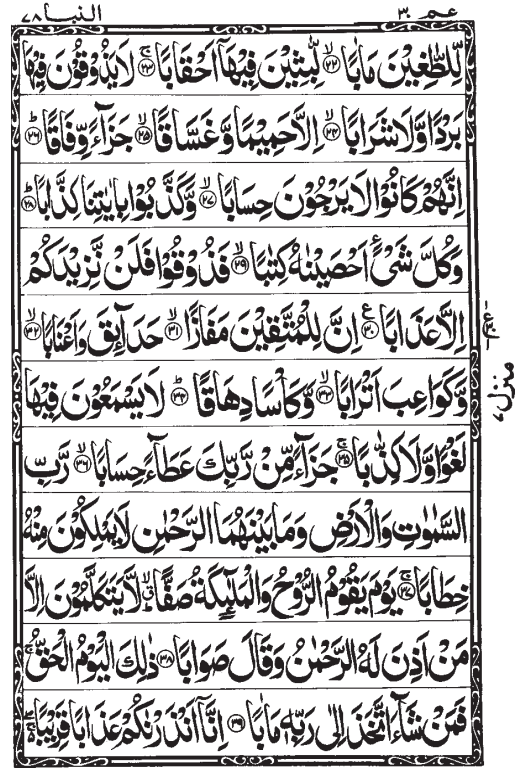 عم ٣٠
النبا ٧٨
لِّلطّٰغِيْنَ مَاٰبًا ۙ﴿٢٢﴾ لّٰبِثِيْنَ فِيْهَآ اَحْقَابًا ۚ﴿٢٣﴾ لَا يَذُوْقُوْنَ فِيْهَا
بَرْدًا وَّلَا شَرَابًا ۙ﴿٢٤﴾ اِلَّا حَمِيْمًا وَّغَسَّاقًا ۙ﴿٢٥﴾ جَزَآءً وِّفَاقًا ؕ﴿٢٦﴾
اِنَّهُمْ كَانُوْا لَا يَرْجُوْنَ حِسَابًا ۙ﴿٢٧﴾ وَّكَذَّبُوْا بِاٰيٰتِنَا كِذَّابًا ؕ﴿٢٨﴾
وَكُلَّ شَيْءٍ اَحْصَيْنٰهُ كِتٰبًا ۙ﴿٢٩﴾ فَذُوْقُوْا فَلَنْ نَّزِيْدَكُمْ
اِلَّا عَذَابًا ﴿٣٠﴾ع اِنَّ لِلْمُتَّقِيْنَ مَفَازًا ۙ﴿٣١﴾ حَدَآئِقَ وَاَعْنَابًا ۙ﴿٣٢﴾
وَّكَوَاعِبَ اَتْرَابًا ۙ﴿٣٣﴾ وَّكَاْسًا دِهَاقًا ؕ﴿٣٤﴾ لَا يَسْمَعُوْنَ فِيْهَا
لَغْوًا وَّلَا كِذّٰبًا ۚ﴿٣٥﴾ جَزَآءً مِّنْ رَّبِّكَ عَطَآءً حِسَابًا ۙ﴿٣٦﴾ رَّبِّ
السَّمٰوٰتِ وَالْاَرْضِ وَمَا بَيْنَهُمَا الرَّحْمٰنِ لَا يَمْلِكُوْنَ مِنْهُ
خِطَابًا ۚ﴿٣٧﴾ يَوْمَ يَقُوْمُ الرُّوْحُ وَالْمَلٰٓئِكَةُ صَفًّا ۙۗ لَّا يَتَكَلَّمُوْنَ اِلَّا
مَنْ اَذِنَ لَهُ الرَّحْمٰنُ وَقَالَ صَوَابًا ﴿٣٨﴾ ذٰلِكَ الْيَوْمُ الْحَقُّ ۚ
فَمَنْ شَآءَ اتَّخَذَ اِلٰى رَبِّهٖ مَاٰبًا ﴿٣٩﴾ اِنَّآ اَنْذَرْنٰكُمْ عَذَابًا قَرِيْبًا ۚۖ
منزل ٧